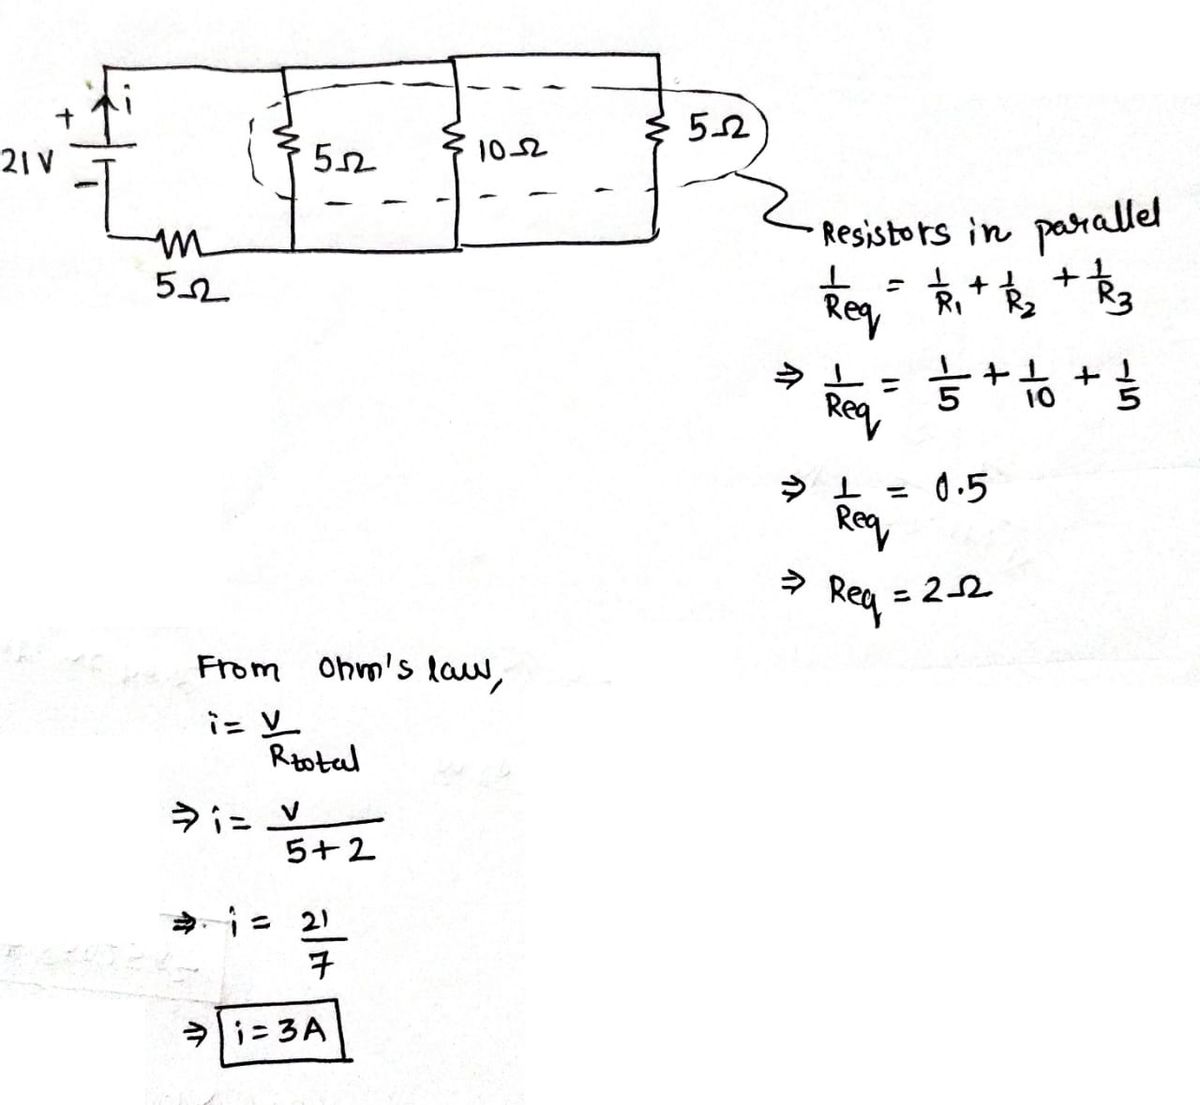 + i
21V
−
5Ω
5Ω
10Ω
5Ω
Resistors in parallel
1/Req = 1/R₁ + 1/R₂ + 1/R₃
⇒ 1/Req = 1/5 + 1/10 + 1/5
⇒ 1/Req = 0.5
⇒ Req = 2Ω
From Ohm's law,
i = V/Rtotal
⇒ i = V/5+2
⇒ i = 21/7
⇒ i = 3A